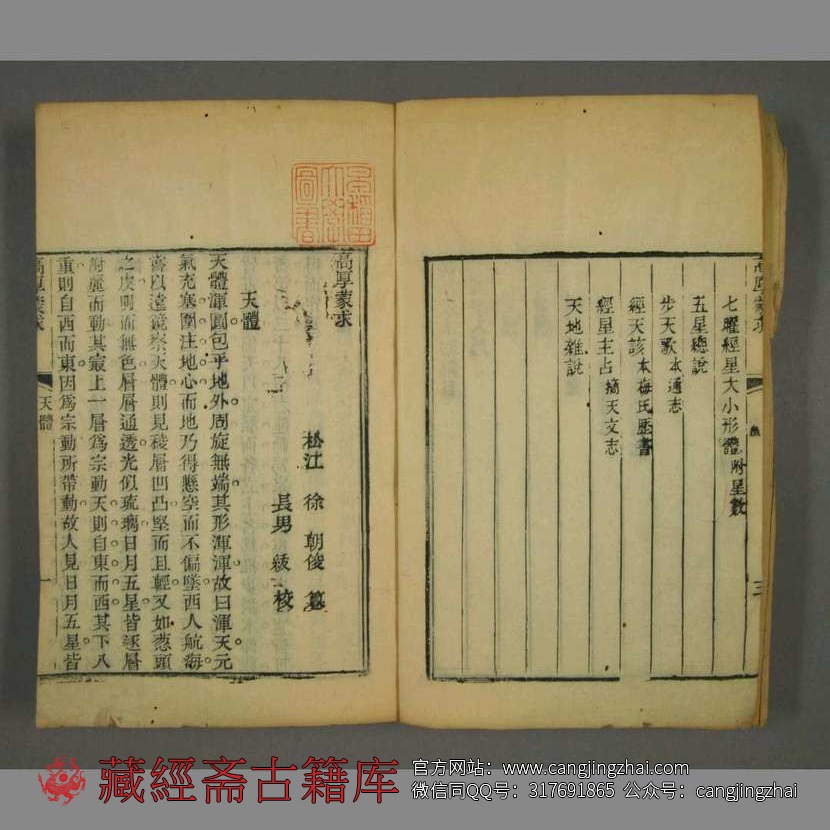 高厚蒙求
三
七曜經星大小形體附星數
五星總說
步天歌本通志
經天該本梅氏歷書
經星主占摘天文志
天地雜說
高厚蒙求
松江 徐 朝俊 纂
長男 紱 校
天體
天體渾圓包乎地外周旋無端其形渾渾故曰渾天元
氣充塞圍注地心而地乃得懸空而不偏墜西人航海
喜以遠鏡察天體則見稜層凹凸堅而且輕又如葱頭
之皮明而無色層層通透光似琉璃日月五星皆逐層
附麗而動其最上一層爲宗動天則自東而西其下八
重則自西而東因爲宗動所帶動故人見日月五星皆
高厚蒙求
天體
一
藏經斋古籍库
官方网站：www.cangjingzhai.com
微信同QQ号：317691865 公众号：cangjingzhai